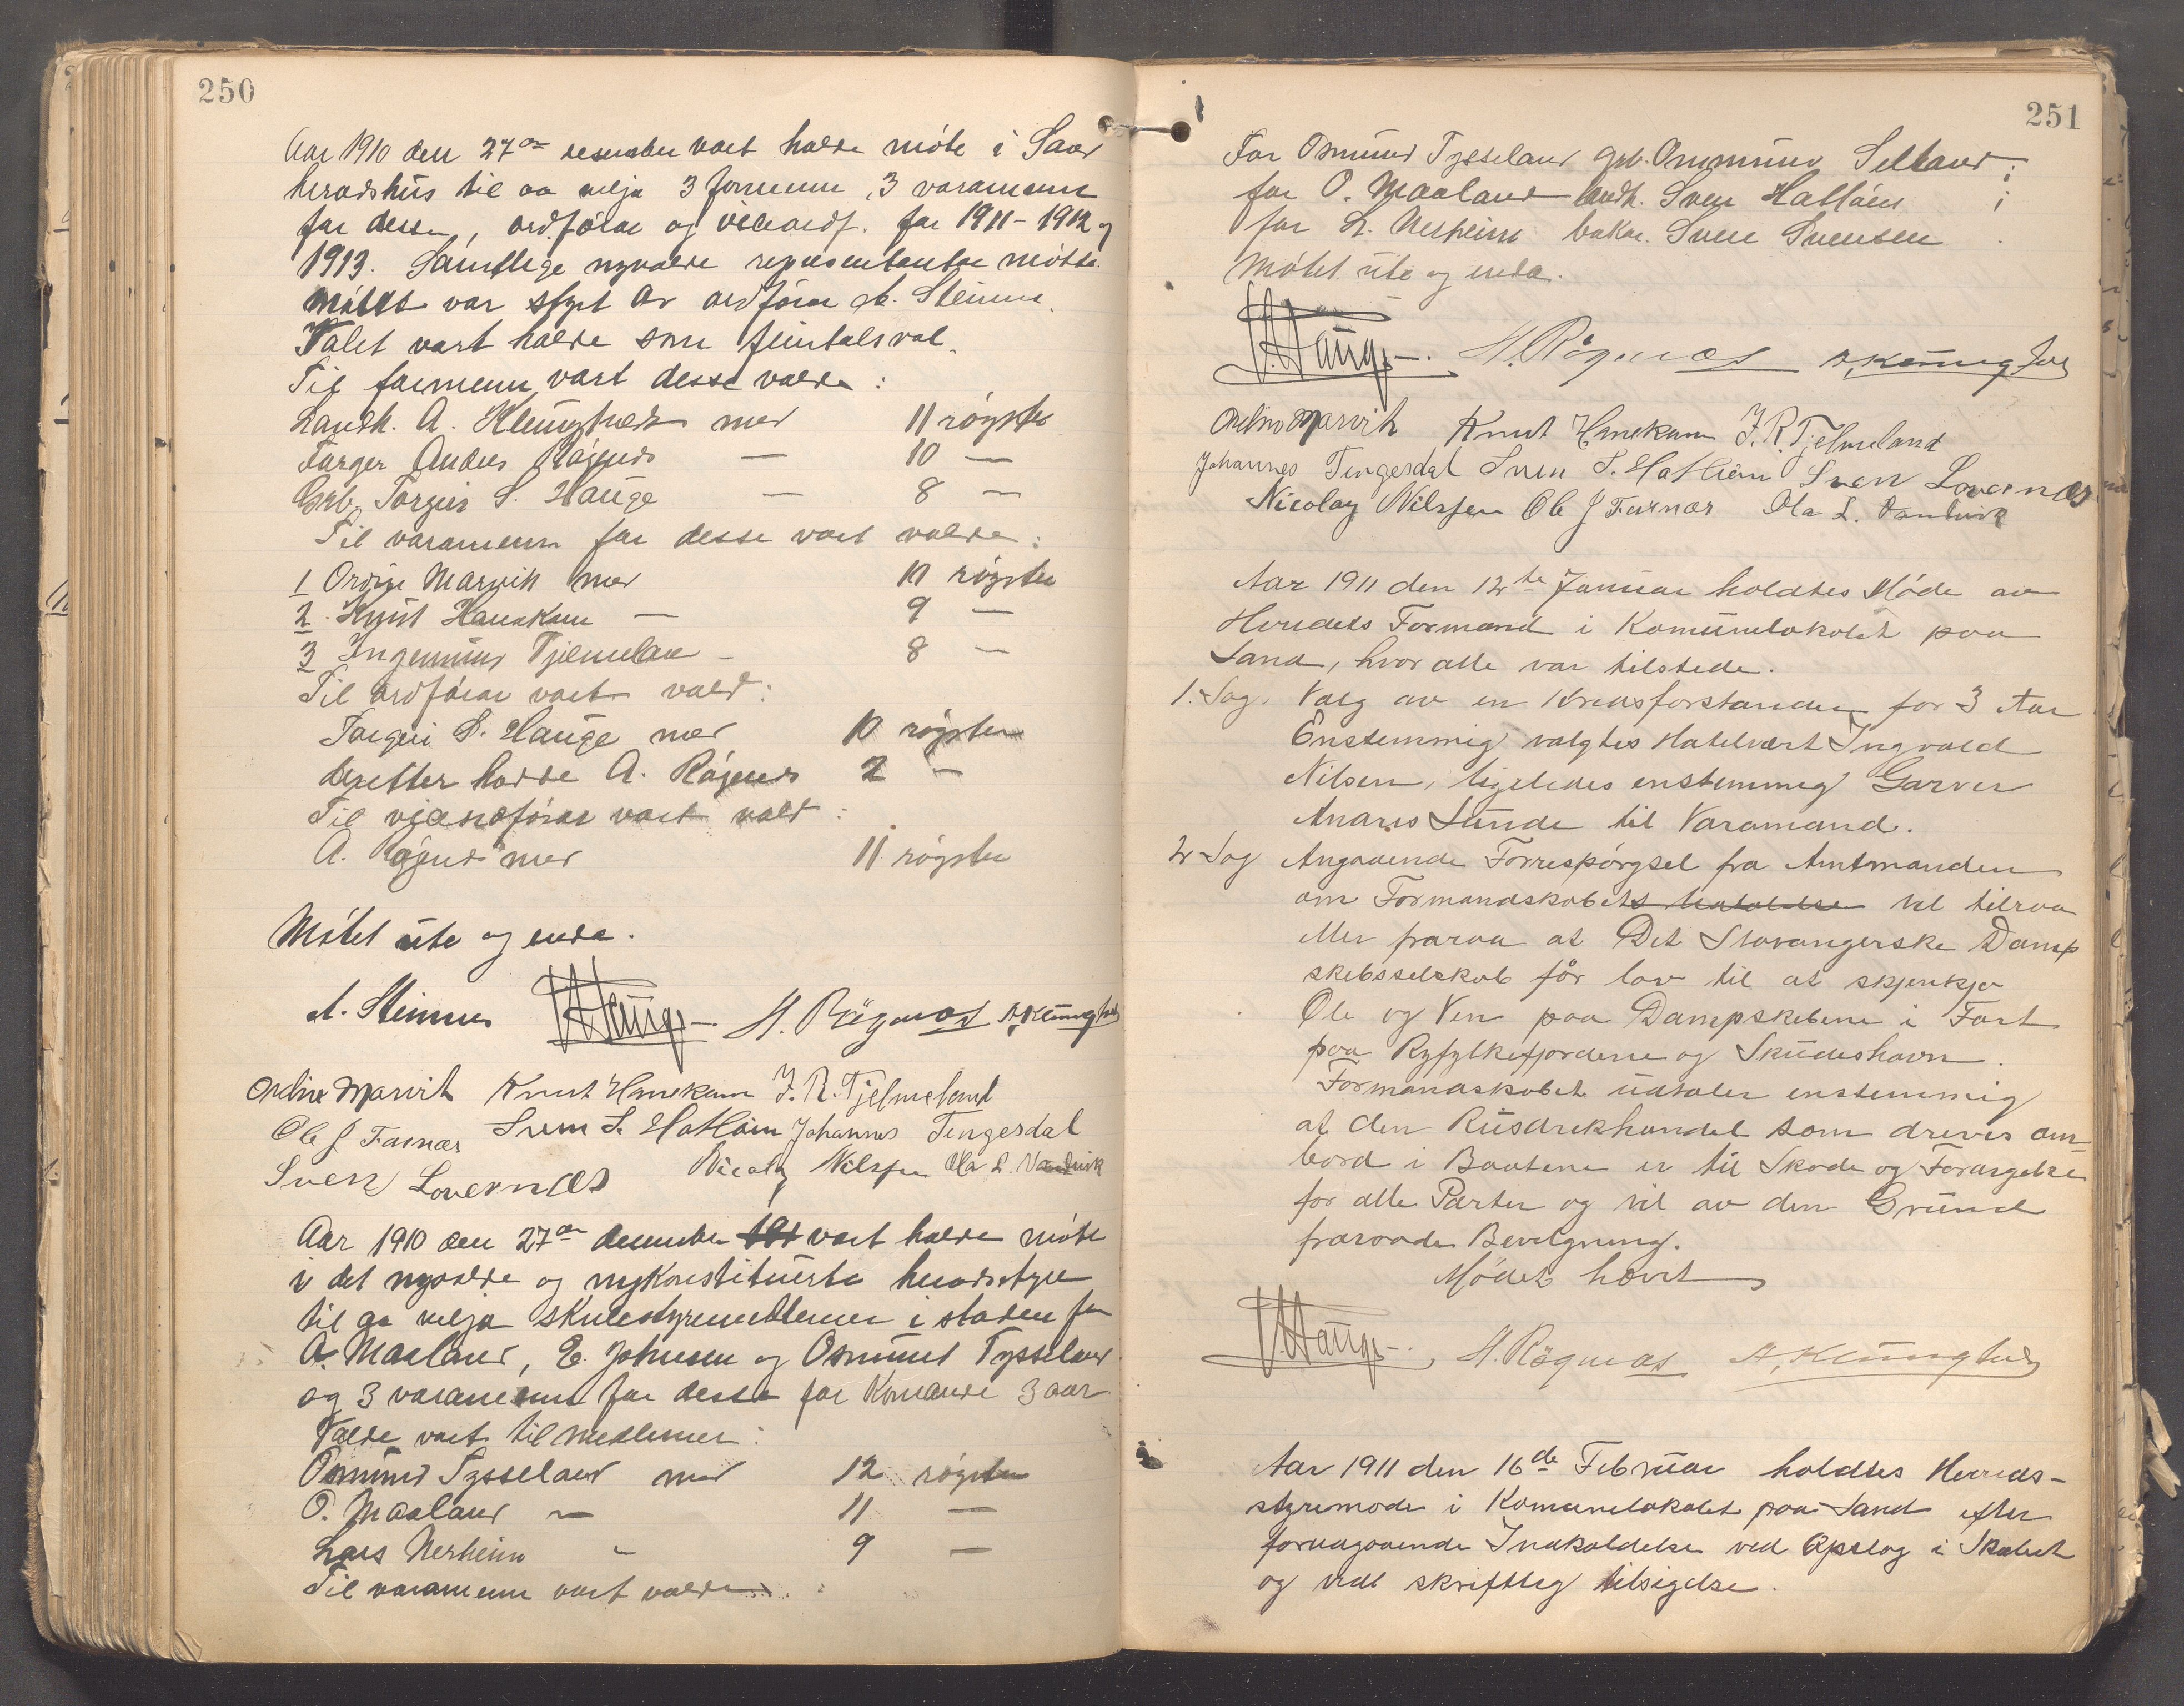 250
Aar 1910 den 27de desember vart halde møte i Sand
heradshus til aa velja 3 formenn, 3 varamenn
for desse, ordførar og viceordf. for 1911-1912 og
1913. Samtlege nyvalde representantar møtte.
Møtet var styrt av ordførar A. Steinnes.
Valet vart halde som fleirtalsval.
Til formenn vart desse valde:
Landh. A. Klungtvedt med 11 røyster
Farger Anders Røgnås — 10 —
Grb. Torgeir S. Hauge — 8 —
Til varamenn for desse vart valde:
1 Ordin Marvik med 11 røyster
2. Knut Hanakam — 9 —
3 Ingemund Tjelmelan — 8 —
Til ordførar vart vald:
Torgeir S. Hauge med 10 røyster
deretter hadde A. Røgnås 2 —
Til vice ordførar vart vald:
A. Røgnås med 11 røyster
Møtet ute og enda.
A. Steinnes T. Hauge. A. Røgnaas A. Klungtvedt
Ordin Marvik Knut Hanekam I. R. Tjelmeland
Ole J Farnær Sven S. Hatløin Johannes Tengesdal
Sven Lovernæs Nicolay Nilssen Ola L. Vandvik
Aar 1910 den 27de desember vart halde møte
i det nyvalde og nykonstituerte heradsstyre
til aa velja skulestyremedlemer i staden for
O. Maaland, E. Johnsen og Osmund Tysseland
og 3 varamenn for desse for komande 3 aar
Valde vart til medlemer:
Osmund Tysseland med 12 røyster
O. Maaland — 11 —
Lars Nerheim — 9 —
Til varamenn vart valde:
251
For Osmund Tysseland grb. Ommund Selland;
for O. Maaland landh. Sven Hatløin;
for L. Nerheim bakar Sven Svensen.
Møtet ute og enda.
T. Hauge. A. Røgnaas A. Klungtvedt
Ordin Marvik Knut Hanekam I. R. Tjelmeland
Johannes Tengesdal Sven S. Hatløin Sven Lovernæs
Nicolay Nilssen Ole J Farnær Ola L. Vandvik
Aar 1911 den 12te Januar holdtes Møde av
Herredets Formænd i Komunelokalet paa
Sand, hvor alle var tilstede.
1. Sag. Valg av en Kredsforstander for 3 Aar
Enstemmig valgtes Hotelvært Ingvald
Nilsen, ligeledes enstemmig Garver
Anares Sunde til Varamand.
2 Sag Angaaende Forrespørgsel fra Amtmanden
om Formandskabets Udtalelse vil tilraa
eller fraraa at Det Stavangerske Damp
skebsselskab før lov til at skjenkja
Øle og Ven paa Dampskebene i Fart
paa Ryfylkefjordene og Skudeshavn.
Formandskabet udtaler enstemmig
at den Rusdrekhandel som drives om-
bord i Baatene er til Skade og Forargelse
for alle Parter og vil av den Grund
fraraade Bevelgning.
Mødet hævet
T. Hauge. A. Røgnaas A. Klungtvedt
Aar 1911 den 16de Februar holdtes Herreds-
styremøde i Komunelokalet paa Sand efter
forudgaaende Indkaldelse ved Opslag i Skabet
og vedl skriftleg tilsigelse.